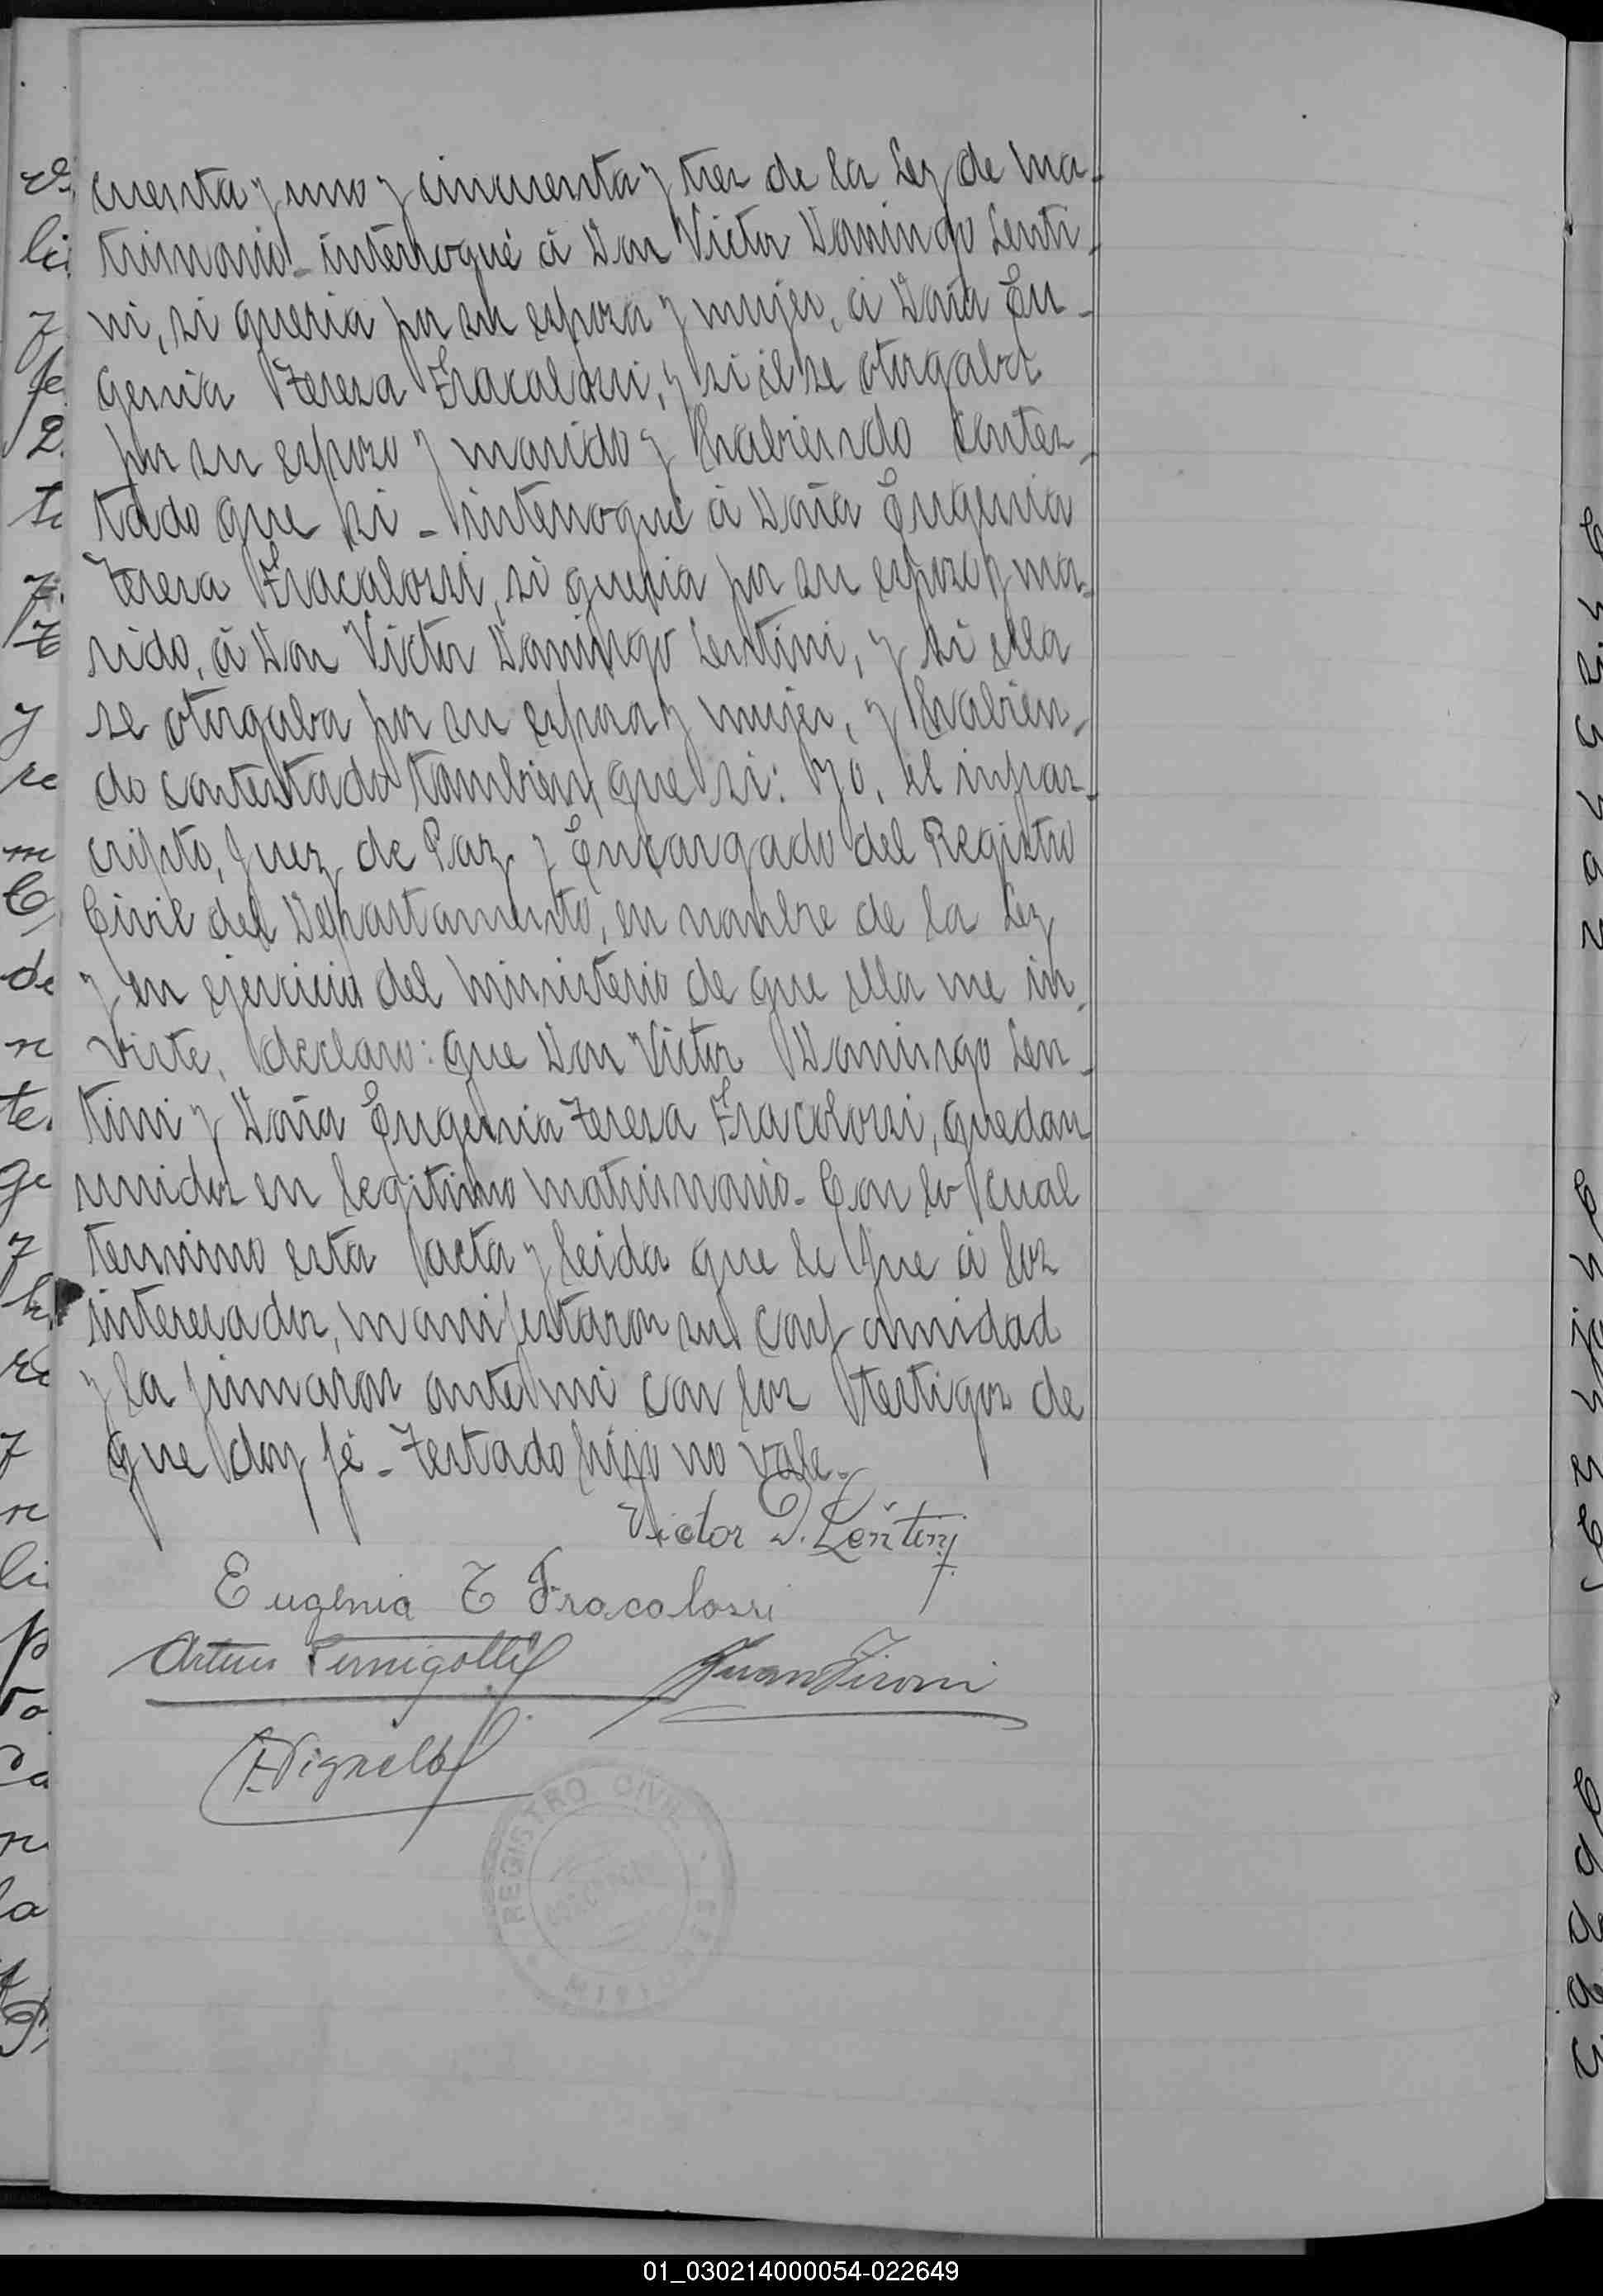 cuenta y uno y cincuenta y tres de la Ley de Ma-
trimonio- interrogué á Don Victor Domingo Lenti-
ni, si queria por su esposa y mujer, á Doña Eu-
genia Teresa Fracalossi, y si él se otorgaba
por su esposo y marido y habiendo contes-
tado que si - interrogué á Doña Eugenia
Teresa Fracalossi, si queria por su esposo y ma-
rido, á Don Victor Domingo Lentini, y si ella
se otorgaba por su esposa y mujer, y habien-
do contestado tambien que si: Yo, el infras-
cripto, Juez de Paz y Encargado del Registro
Civil del Departamento, en nombre de la Ley
y en ejercicio del ministerio de que ella me in-
viste, declaro: que Don Victor Domingo Len-
tini y Doña Eugenia Teresa Fracolossi, quedan
unidos en legitimo matrimonio- Con lo cual
termino esta acta y leida que le fue á los
interesados, manifestaron su conformidad
y la firmaron ante mi con los testigos de
que doy fé- Testado hijo no vale.
Victor D. Lentini
Eugenia T Fracalossi
Arturo Pernigotti Juan Tironi
REGISTRO CIVIL
01_030214000054-022649